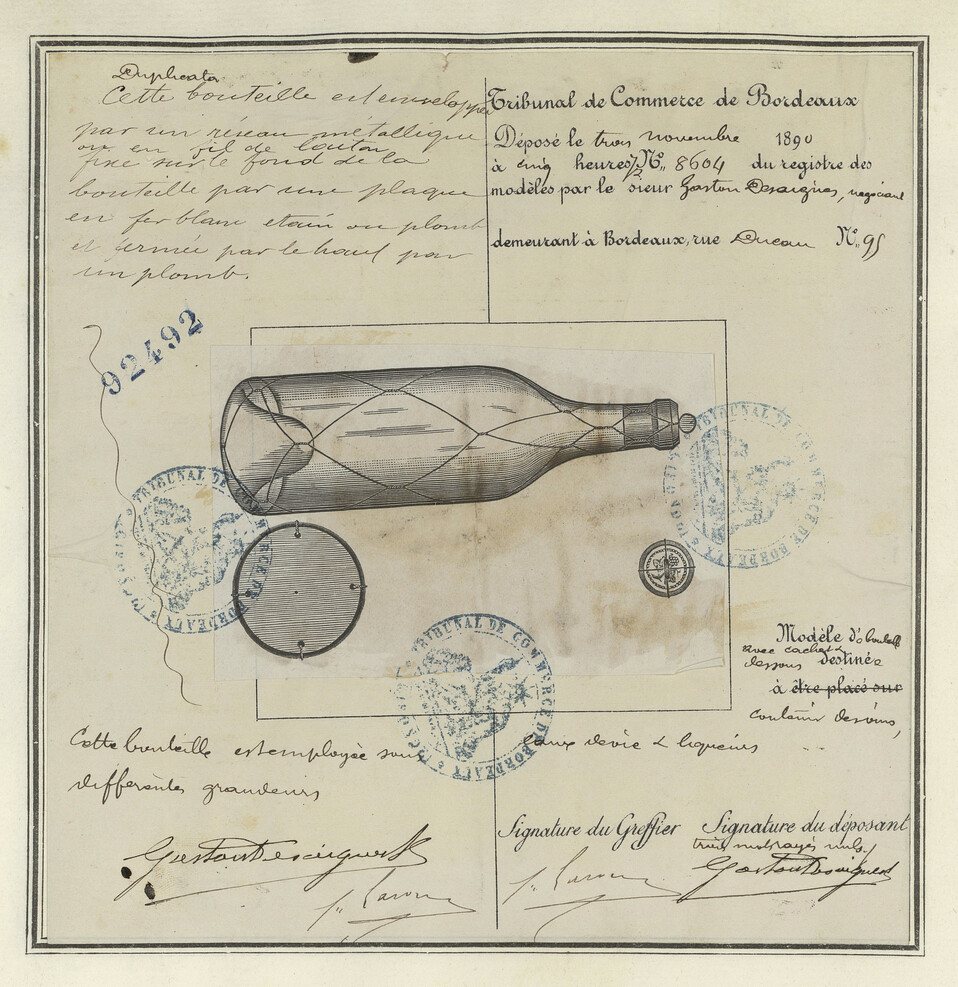 Duplicata
Cette bouteille est enveloppée
par un réseau métallique
ou en fil de laiton
fixé sur le fond de la
bouteille par une plaque
en fer blanc etain ou plomb
et fermée par le haut par
un plomb.
Tribunal de Commerce de Bordeaux
Déposé le trois novembre 1890
à cinq heures 1/2 N° 8604 du registre des
modèles par le sieur Gaston Desaignes, négociant
demeurant à Bordeaux, rue Ducau N° 95
92492
TRIBUNAL DE COMMERCE DE BORDEAUX
TRIBUNAL DE COMMERCE DE BORDEAUX
TRIBUNAL DE COMMERCE DE BORDEAUX
Modèle de bouteille
avec cachet
dessous destinée
à être placé sur
contenir des vins,
Cette bouteille est employée sous
eaux de vie & liqueurs
differentes grandeurs
Signature du Greffier
Signature du déposant
trois mots rayés nuls.